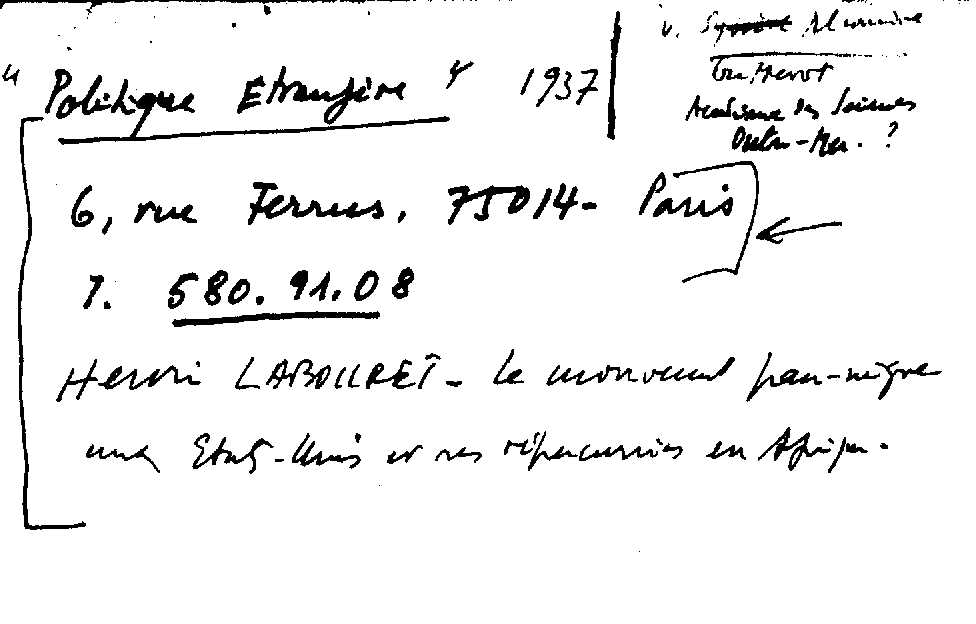 "Politique Etrangère" 1937
6, rue Ferrus, 75014- Paris
T. 580.91.08
Henri LABOURET - Le mouvement pan-nègre
aux Etats-Unis et ses répercussions en Afrique.
v.
Académie des Sciences
Outre-Mer. ?